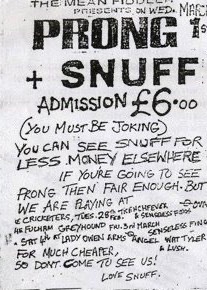 THE MEAN FIDDLER
PRESENTS ON WED. MARCH
PRONG 1st
+ SNUFF
ADMISSION £6.00
(YOU MUST BE JOKING)
YOU CAN SEE SNUFF FOR
LESS MONEY ELSEWHERE
IF YOU'RE GOING TO SEE
PRONG THEN FAIR ENOUGH. BUT
WE ARE PLAYING AT
CRICKETERS, TUES. 28th FEB. & SENSELESS THINGS
FULHAM GREYHOUND FRI. 3rd MARCH
SAT 4th AT LADY OWEN ARMS ANGEL WAT TYLER
FOR MUCH CHEAPER, & LUSH.
SO DON'T COME TO SEE US!
LOVE SNUFF.